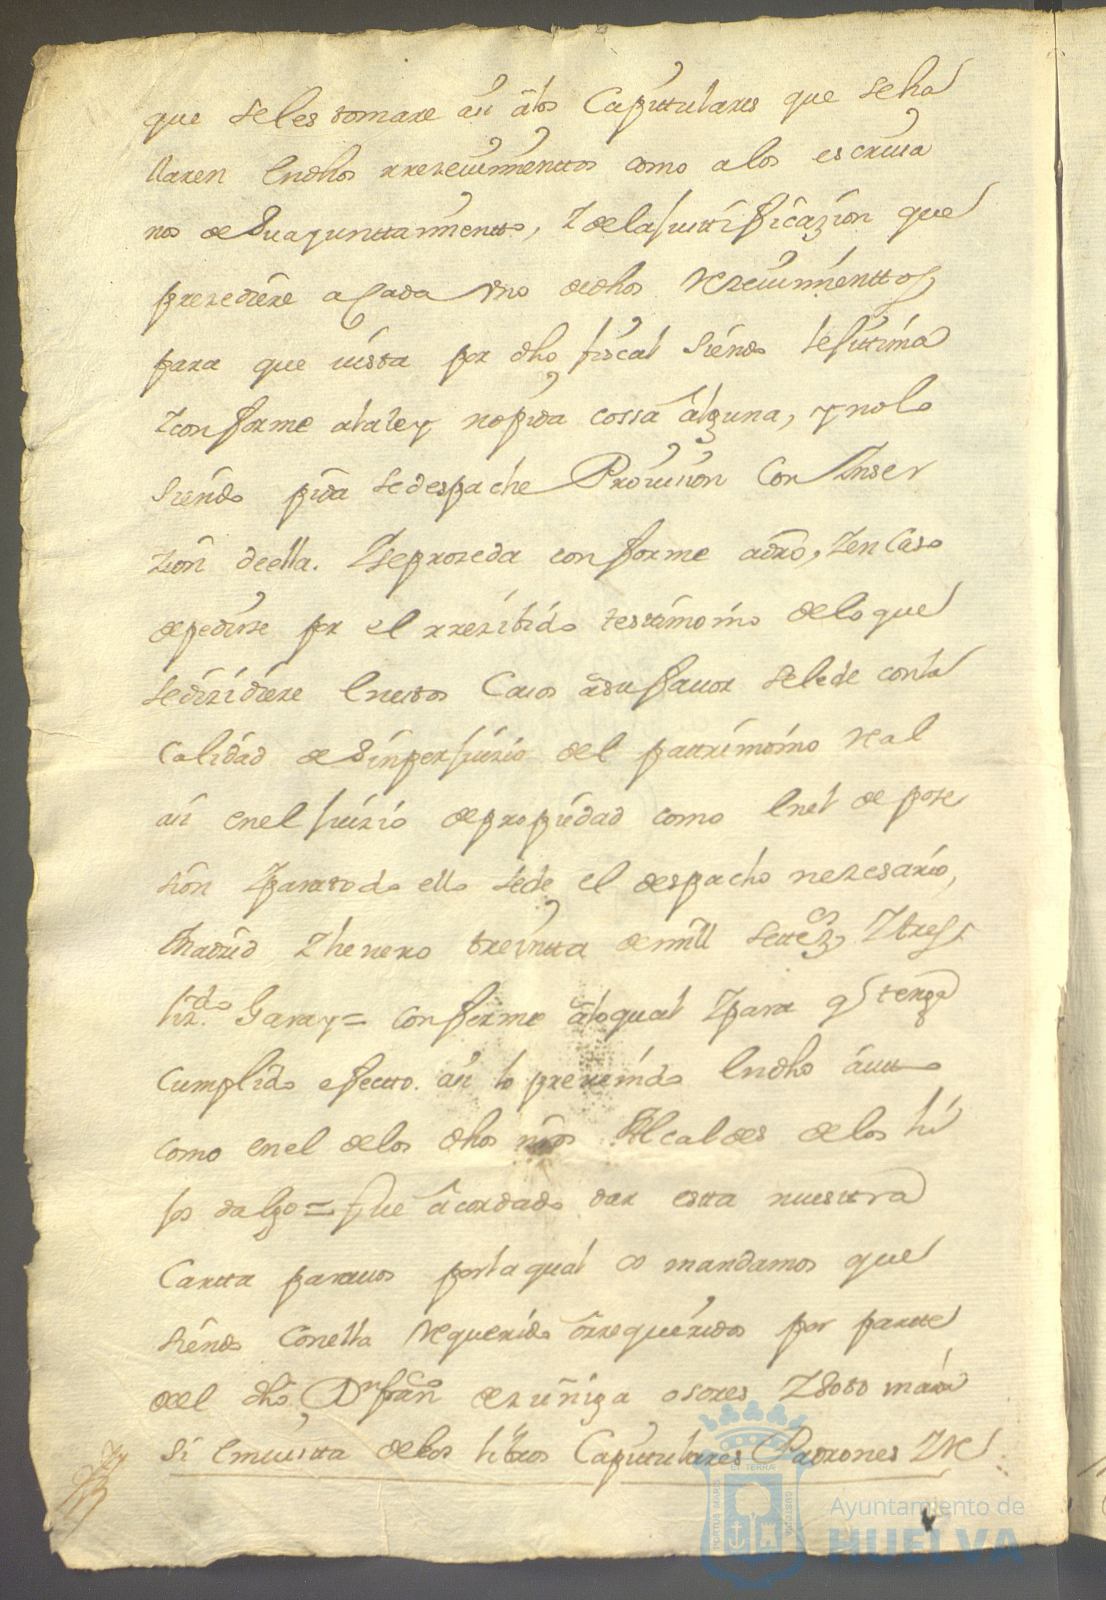 que seles tomare asi alos Capitulares que seha
llaren endhos rrezeuimenttos como alos escriua
nos desu ayunttamiento, Y dela justificazion que
prezediere acada uno dedhos Rezeuimienttos
para que uista por dho fiscal siendo lejitima
Yconforme alaley nopida cossa alguna, y nolo
siendo pida sedespache Prouision Con Inser
zion deella. Yseprozeda conforme adro, Yen Caso
depedirse por el rrezibido testimonio delo que
sedizidiere enestos Casos asu fauor selede conla
Calidad desinperjuizio del patrimonio real
asi enel juizio depropiedad como enel de pose
sion Yparatodo ello sede el despacho nezesario,
Madrid Yhenero treintta demill settezs Ytres
lizdo. Garay= Conforme aloqual Ypara q tenga
Cumplido efecto. asi lo preuenido Endho autto
como enel delos dhos nros Alcaldes delos hi
jos dalgo= fue acordado dar esta nuestra
Cartta parauos porla qual os mandamos que
siendo Conella Requerido orrequeridos por parte
del dho Dn Franco dezuñiga osores Ytoto
si enuista delos libros Capitulares Padrones YRe
PORTUS MARIS
ET TERRÆ
CUSTODIA
Ayuntamiento de
HUELVA